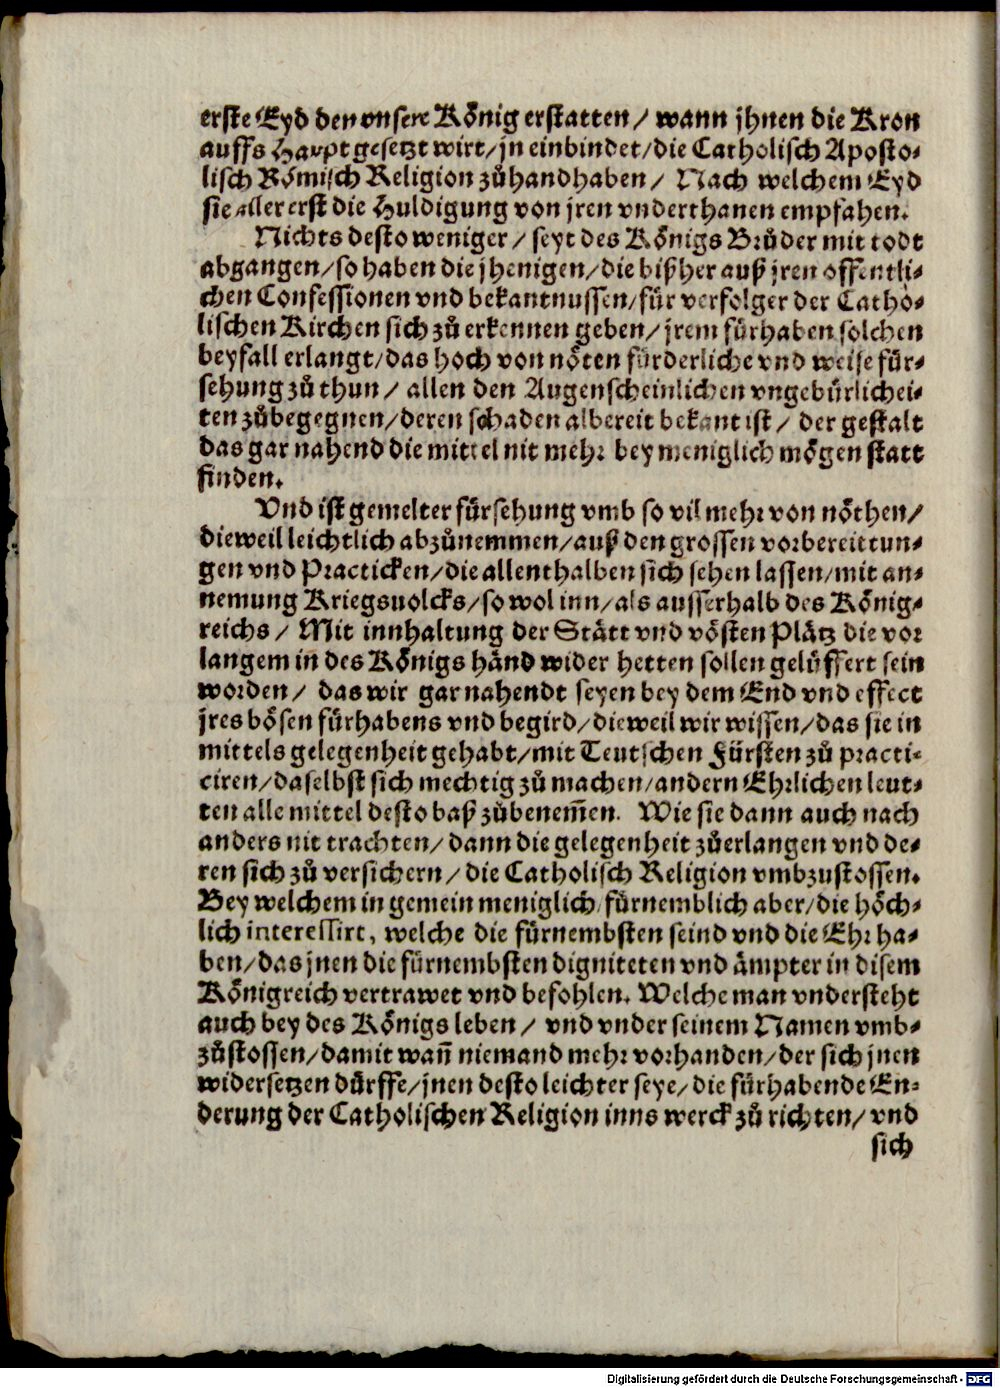 erste Eyd den vnsere Kӧnig erstatten / wann jhnen die Kron
auffs Haupt gesetzt wirt / jn einbindet / die Catholisch Aposto-
lisch Rӧmisch Religion zůhandhaben / Nach welchem Eyd
sie aller erst die Huldigung von jren vnderthanen empfahen.
Nichts desto weniger / seyt des Kӧnigs Brůder mit todt
abgangen / so haben die jhenigen / die bißher auß jren offentli-
chen Confessionen vnd bekantnussen / fůr verfolger der Catho-
lischen Kirchen sich zů erkennen geben / jrem fůrhaben solchen
beyfall erlangt / das hoch von nӧten fůrderliche vnd weise fůr-
sehung zů thun / allen den Augenscheinlichen vngebůrlichei-
ten zůbegegnen / deren schaden albereit bekant ist / der gestalt
das gar nahend die mittel nit mehr bey meniglich mӧgen statt
finden.
Vnd ist gemelter fůrsehung vmb so vil mehr von nӧthen /
dieweil leichtlich abzůnemmen / auß den grossen vorbereittun-
gen vnd Practicken / die allenthalben sich sehen lassen / mit an-
nemung Kriegsuolcks / so wol inn / als ausserhalb des Kӧnig-
reichs / Mit innhaltung der Stätt vnd vӧsten Plätz die vor
langem in des Kӧnigs händ wider hetten sollen gelůffert sein
worden / das wir gar nahendt seyen bey dem End vnd effect
jres bӧsen fůrhabens vnd begird / dieweil wir wissen / das sie in
mittels gelegenheit gehabt / mit Teutschen Fürsten zů practi-
ciren / daselbst sich mechtig zů machen / andern Ehrlichen leut-
ten alle mittel desto baß zůbenem̃en. Wie sie dann auch nach
anders nit trachten / dann die gelegenheit zůerlangen vnd de-
ren sich zů versichern / die Catholisch Religion vmbzustossen.
Bey welchem in gemein meniglich / fůrnemblich aber / die hӧch-
lich interessirt, welche die fůrnembsten seind vnd die Ehr ha-
ben / das jnen die fůrnembsten digniteten vnd ämpter in disem
Kӧnigreich vertrawet vnd befohlen. Welche man vndersteht
auch bey des Kӧnigs leben / vnd vnder seinem Namen vmb-
zůstossen / damit wañ niemand mehr vorhanden / der sich jnen
widersetzen dürffe / jnen desto leichter seye / die fůrhabende En-
derung der Catholischen Religion inns werck zů richten / vnd
sich
Digitalisierung gefördert durch die Deutsche Forschungsgemeinschaft - DFG